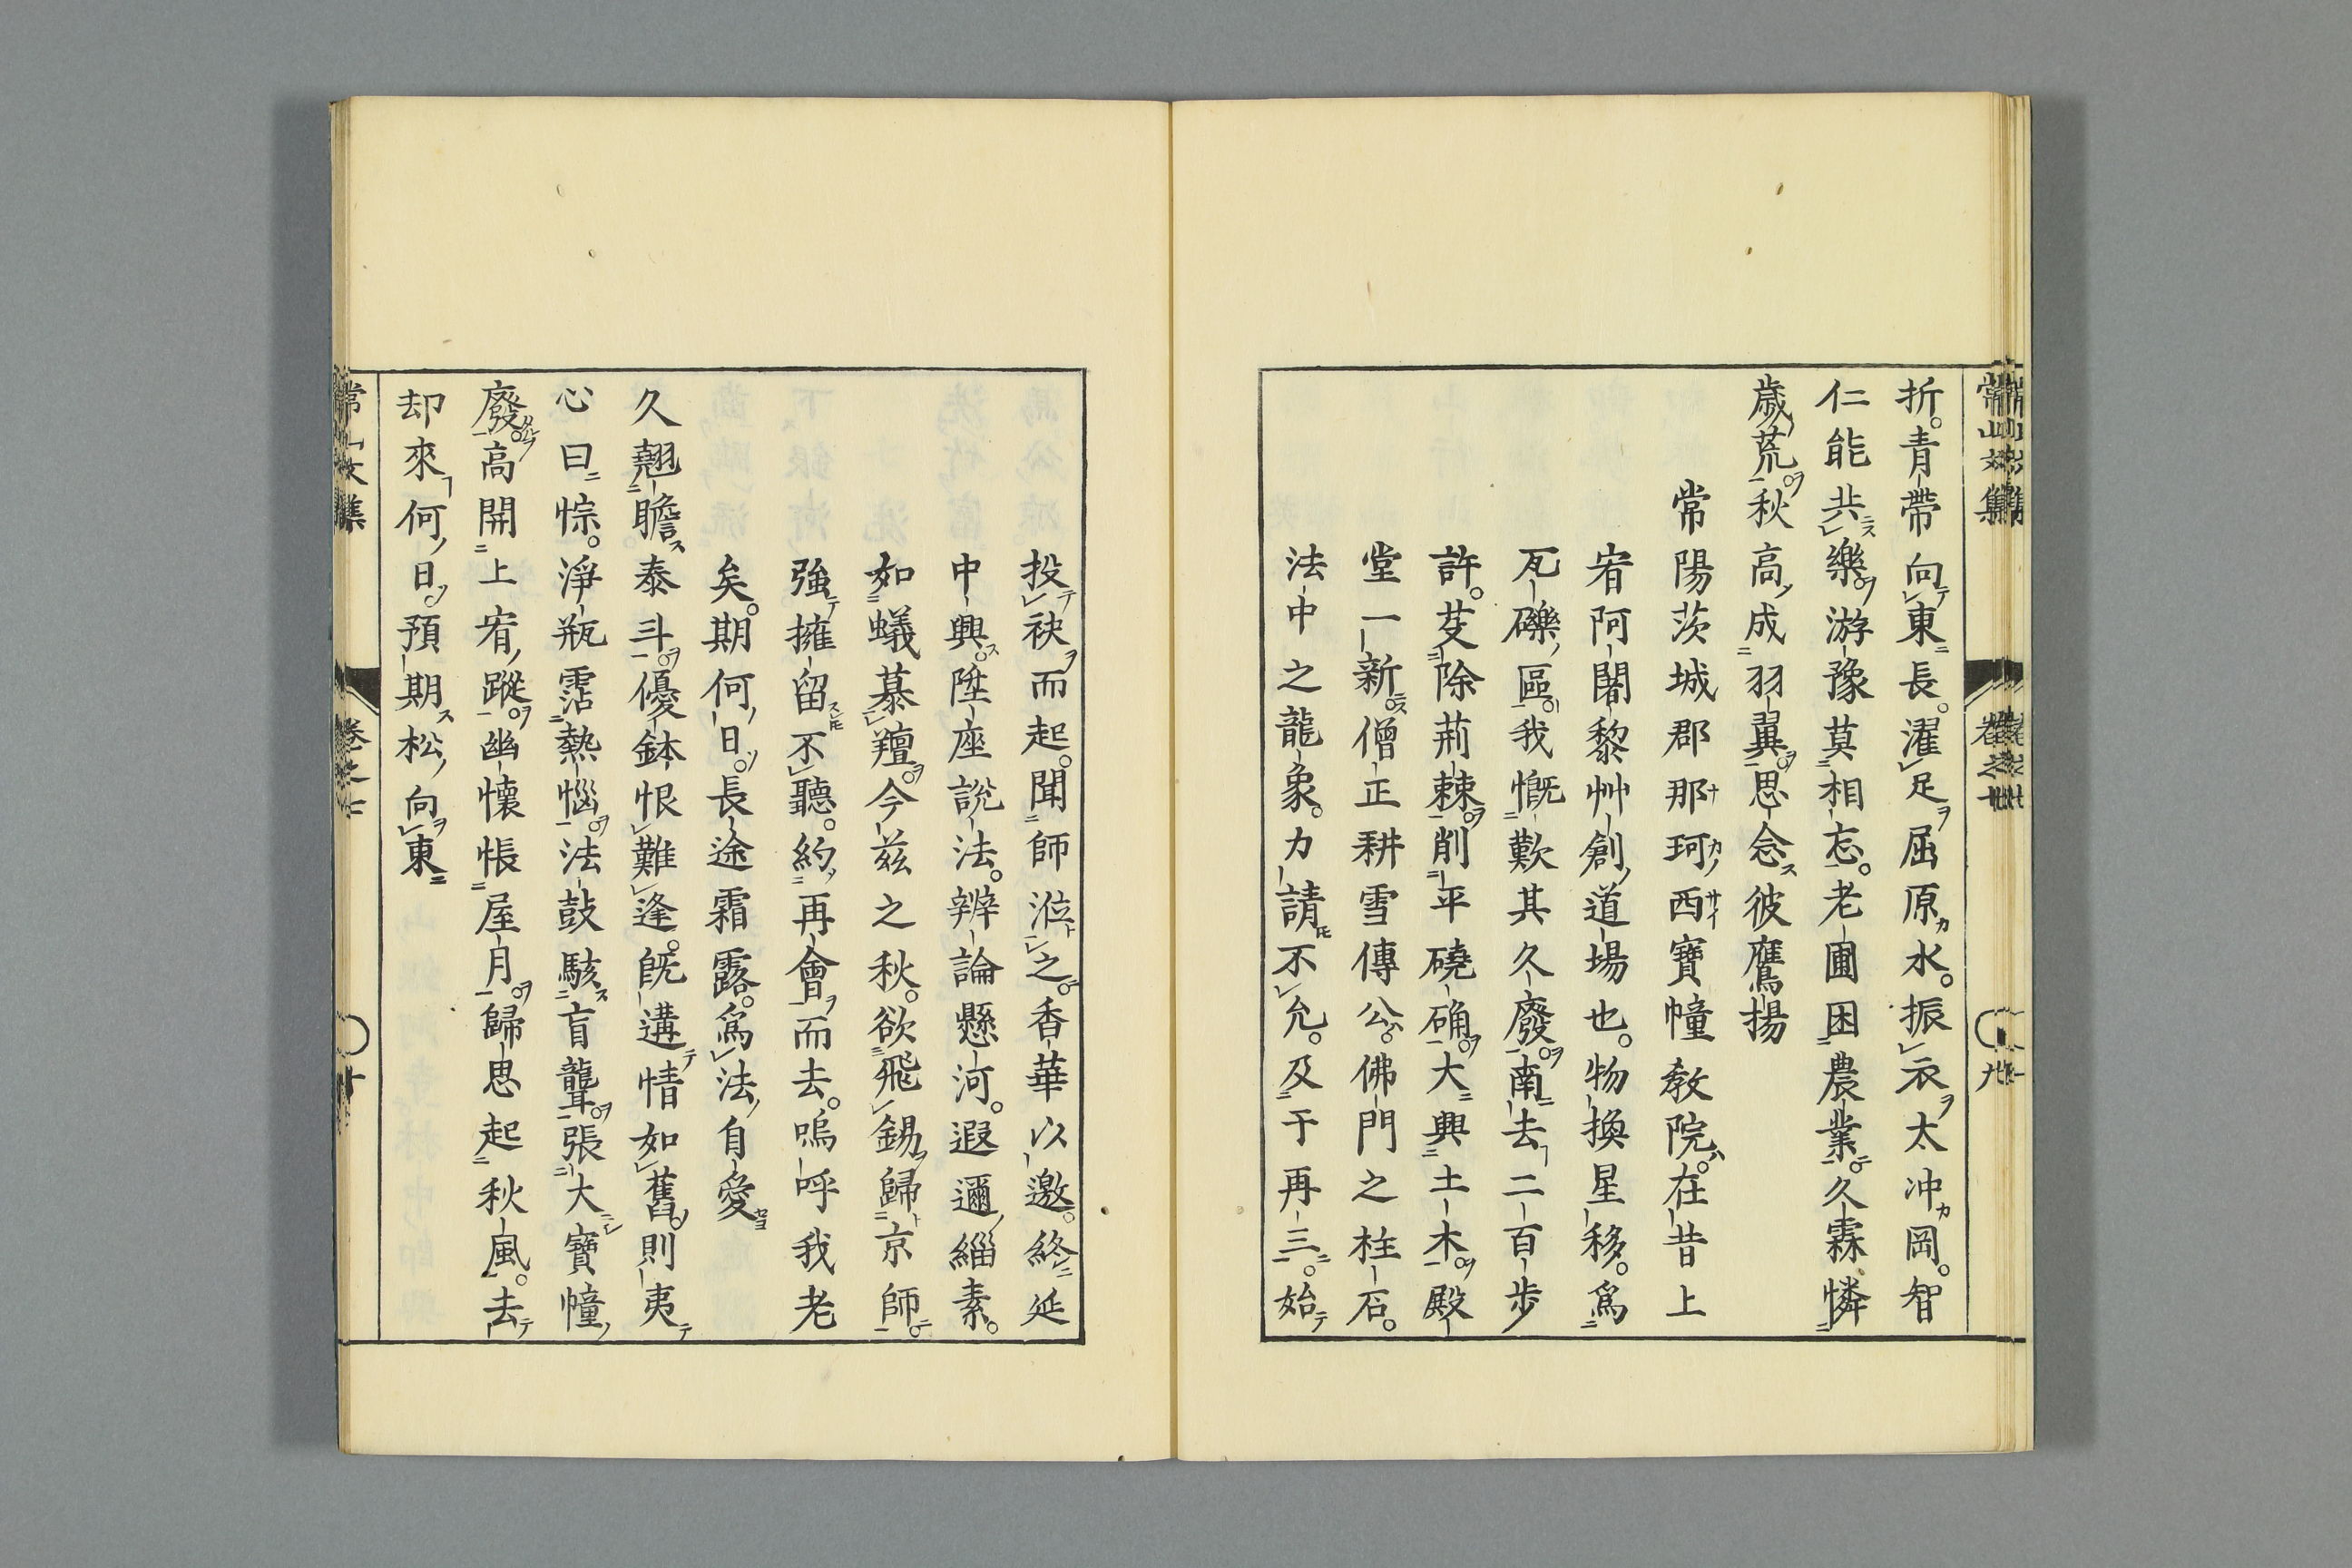 折青帶向東長濯足屈原水振衣太冲岡智
仁能共樂游豫莫相忘老圃困農業久霖憐
歲荒秋高成羽翼思念彼鷹揚
常陽茨城郡那珂西寶幢教院在昔上
宥阿闍黎艸創道場也物換星移爲
瓦礫區我慨歎其久廢南去二百步
許芟除荊棘削平磽确大興土木殿
堂一新僧正耕雪傳公佛門之柱石
法中之龍象力請不允及于再三始
投袂而起聞師涖之香華以邀終延
中興陞座說法辨論懸河遐邇緇素
如蟻慕羶今茲之秋欲飛錫歸京師
強擁留不聽約再會而去嗚呼我老
矣期何日長途霜露爲法自愛
久翹瞻泰斗優鉢恨難逢既遘情如舊則夷
心曰悰淨瓶霑熱惱法鼓駭盲聾張大寶幢
廢高開上宥蹤幽懷悵屋月歸思起秋風去
却來何日預期松向東
常山文集
卷之十